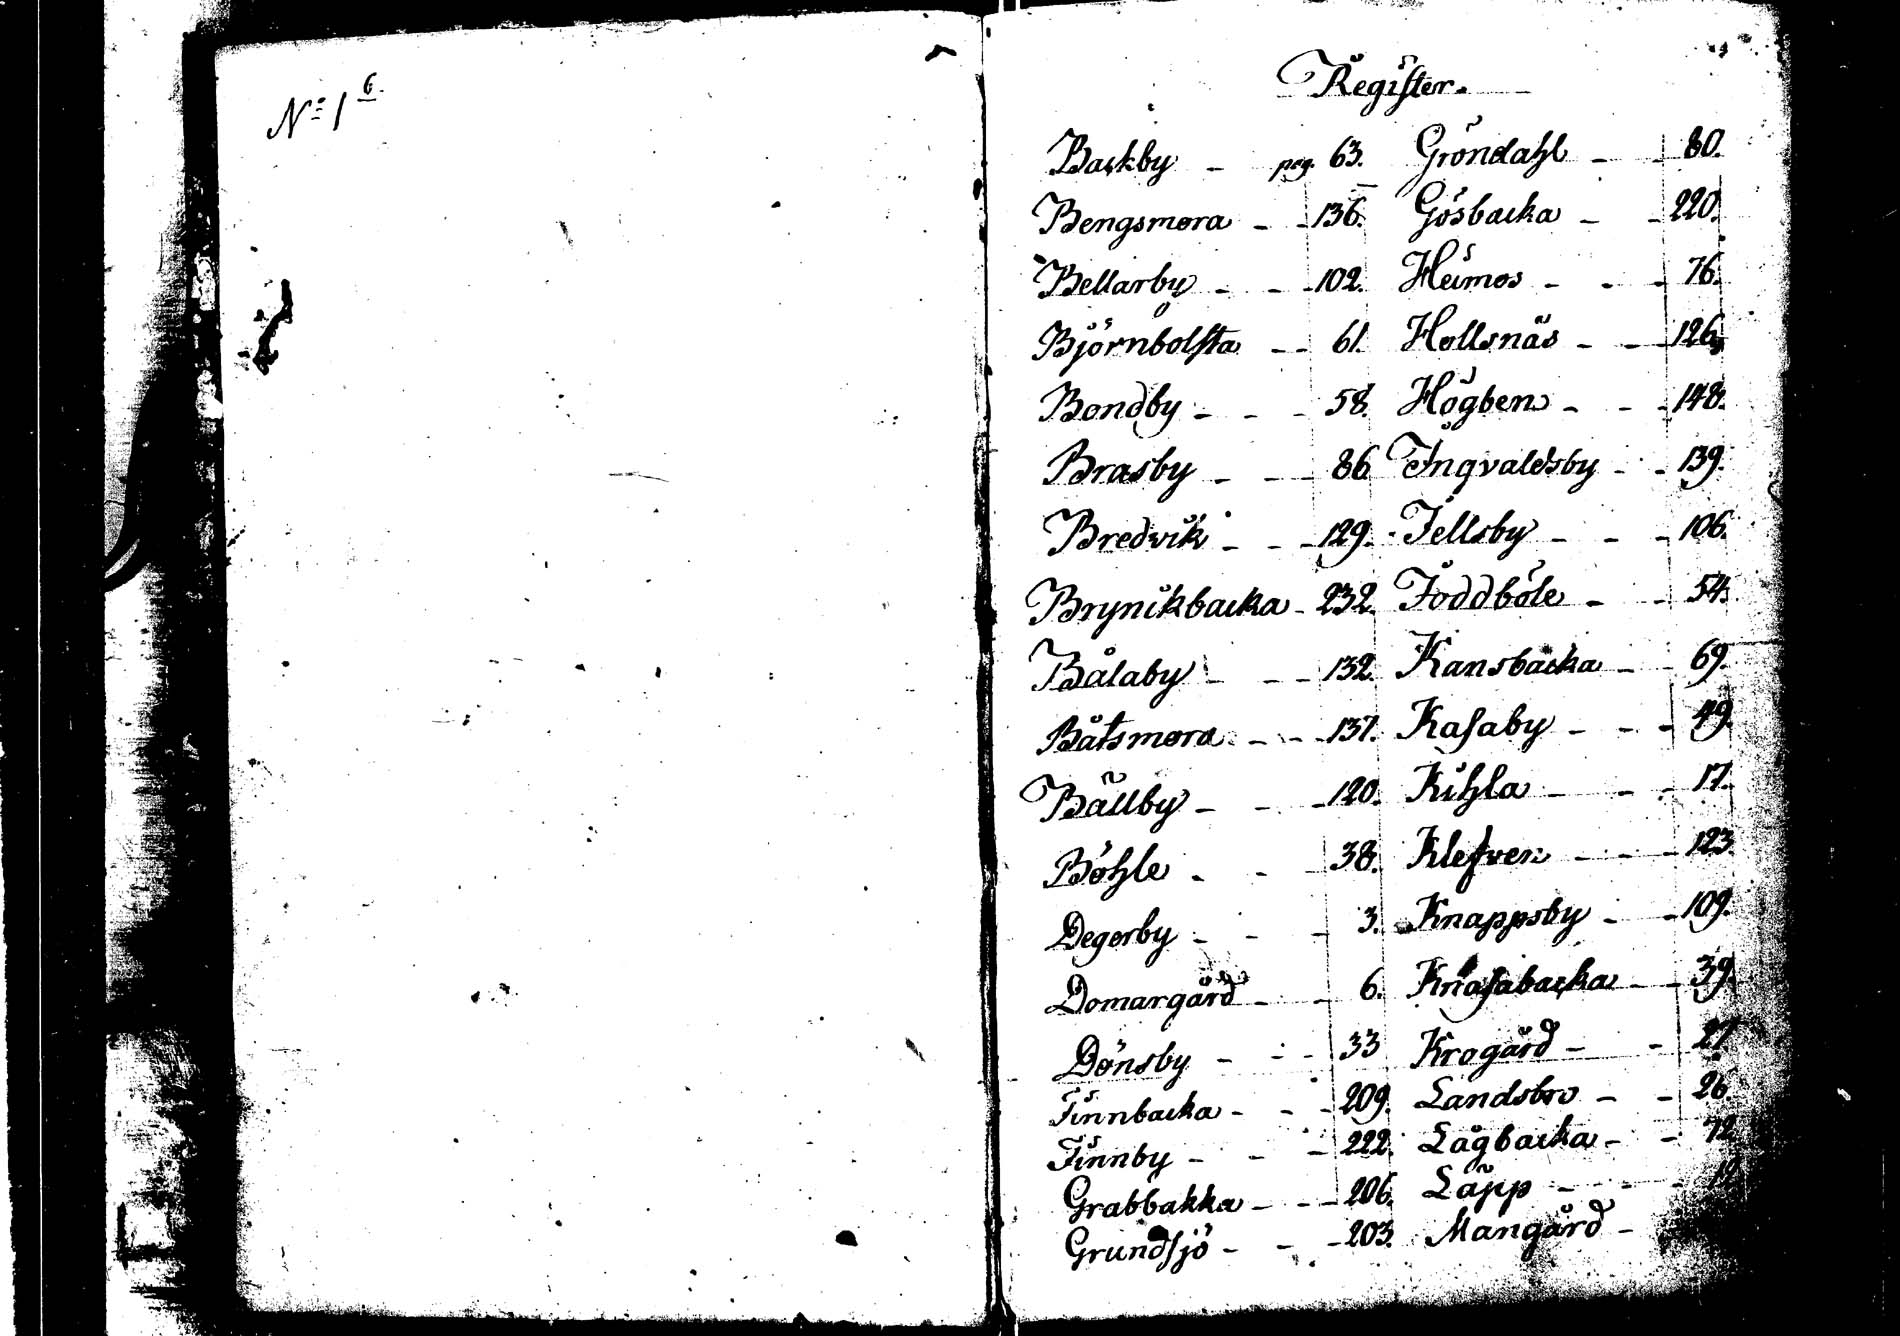 N:o 1 6.
Register.
Backby - pag. 63.
Bengsmora - - 136.
Bellarby - - - 102.
Björnbolsta - - 61.
Bondby - - - 58.
Brasby - - - 86
Bredvik - - - 129.
Brynikbacka - 232.
Bålaby - - - 132.
Båtsmora - - - 137.
Bällby - - - 120.
Böhle - - - 38.
Degerby - - - 3.
Domargård - - 6.
Dönsby - - - 33
Finnbacka - - - 209.
Finnby - - - 222.
Grabbakka - - - 206.
Grundsjö - - - 203.
Gröndahl - - 80.
Gösbacka - - 220.
Heimos - - - 76.
Hollsnäs - - - 126.
Högben - - - 148.
Ingvaldsby - - 139.
Jellsby - - - 106.
Joddböle - - 54.
Kansbacka - - 69.
Kasaby - - - 49.
Kihla - - - 17.
Klefven - - - 123.
Knappsby - - 109.
Knasabacka - - 39.
Krogård - - 27.
Landsbro - - 26.
Lågbacka - - 72
Läpp - - -
Mangård -